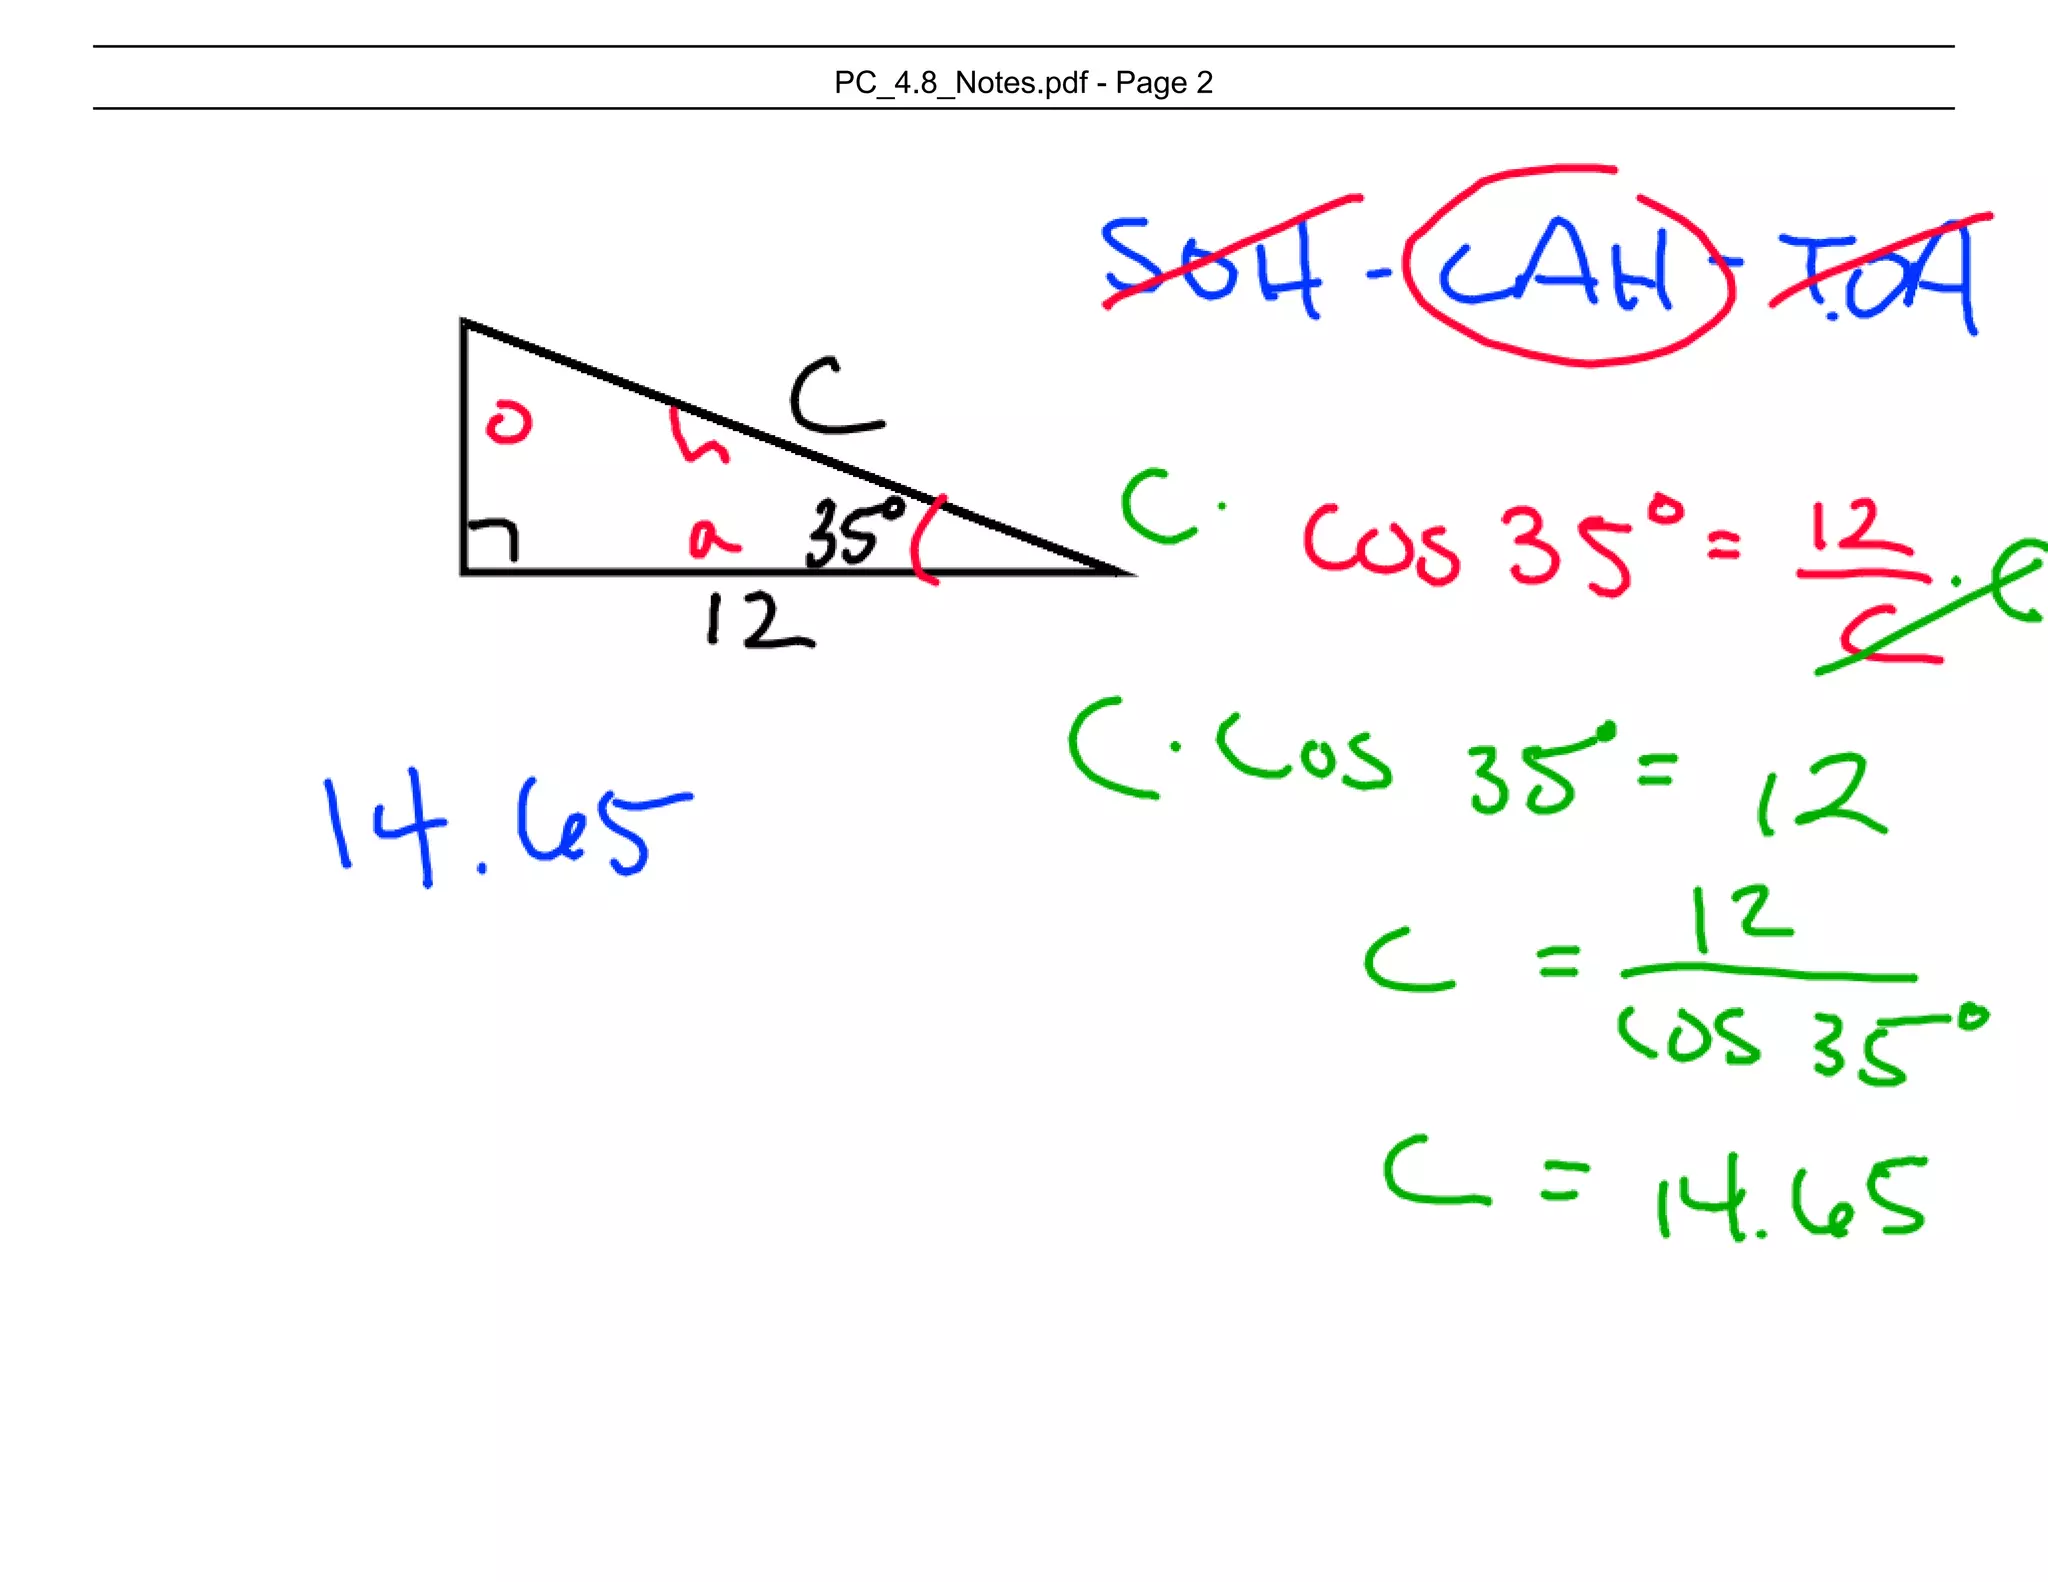 PC_4.8_Notes.pdf - Page 2
SOH - CAH - TOA
C
o
h
a
35°
12
C · cos 35° = 12/C · C
C · cos 35° = 12
14.65
C = 12/cos 35°
C = 14.65